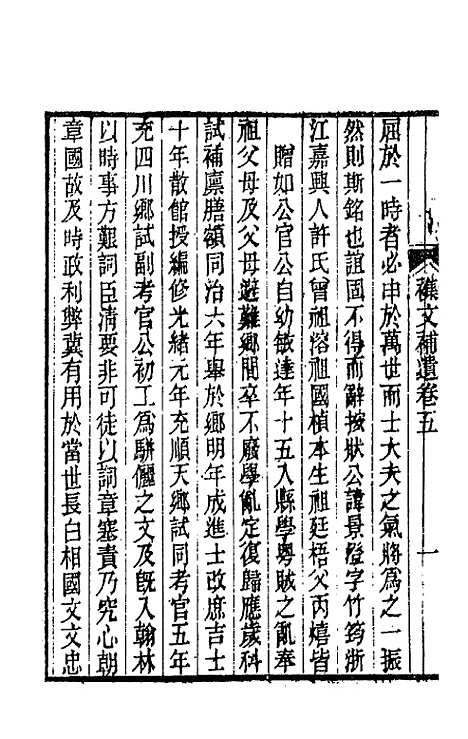 襍文補遺卷五
一
屈於一時者必申於萬世而士大夫之氣將爲之一振
然則斯銘也誼固不得而辭按狀公諱景澄字竹筠浙
江嘉興人許氏曾祖溶祖國楨本生祖廷梧父丙嬉皆
贈如公官公自幼敏達年十五入縣學粵賊之亂奉
祖父母及父母避難鄉間卒不廢學亂定復歸應歲科
試補廩膳額同治六年舉於鄉明年成進士改庶吉士
十年散館授編修光緒元年充順天鄉試同考官五年
充四川鄉試副考官公初工爲駢儷之文及旣入翰林
以時事方艱詞臣淸要非可徒以詞章塞責乃究心朝
章國故及時政利弊冀有用於當世長白相國文文忠